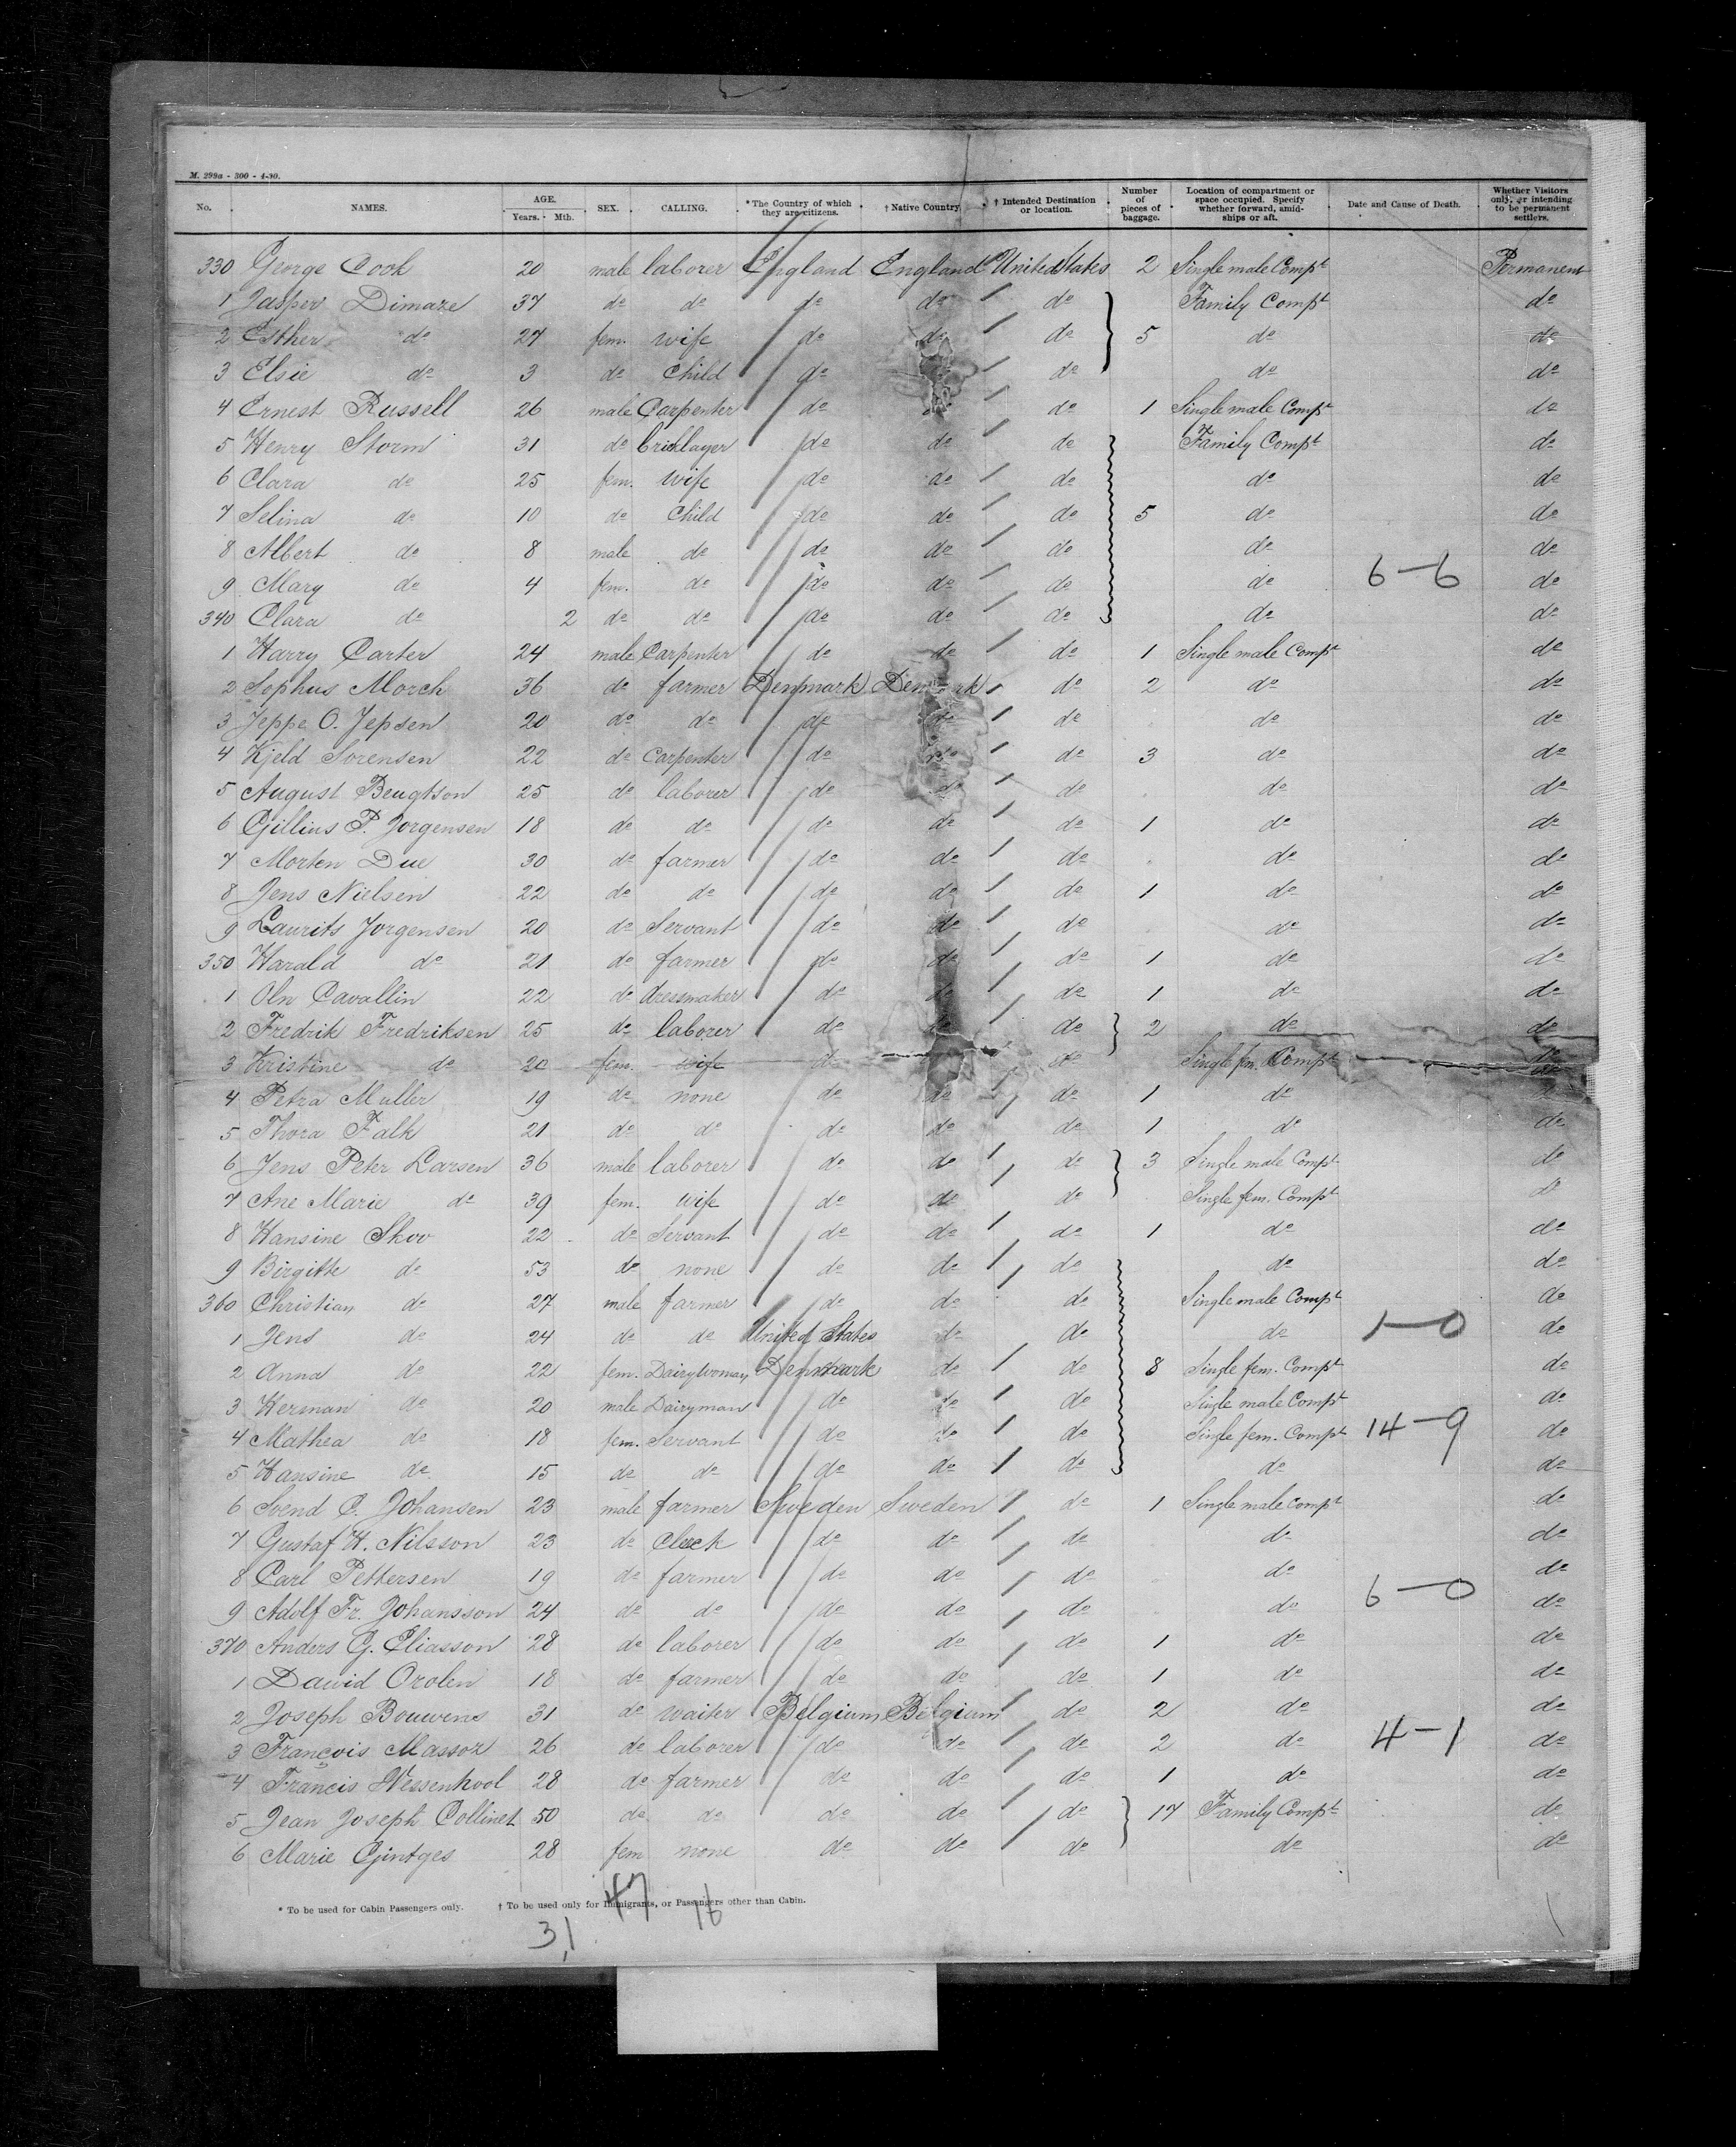 M. 299a - 300 - 4-90.
No. NAMES. AGE. Years. Mth. SEX. CALLING. *The Country of which they are citizens. † Native Country. † Intended Destination or location. Number of pieces of baggage. Location of compartment or space occupied. Specify whether forward, amidships or aft. Date and Cause of Death. Whether Visitors only, or intending to be permanent settlers.
330 George Cook 20 male laborer England England United States 2 Single male Compt Permanent
1 Jasper Dimaze 37 do do do do do Family Compt do
2 Esther do 27 fem. wife do do do 5 do do
3 Elsie do 3 do Child do do do do do
4 Ernest Russell 26 male Carpenter do do do 1 Single male Compt do
5 Henry Storm 31 do bricklayer do do do Family Compt do
6 Clara do 25 fem. wife do do do do do
7 Selina do 10 do Child do do do 5 do do
8 Albert do 8 male do do do do do do
9 Mary do 4 fem. do do do do do 6-6 do
340 Clara do 2 do do do do do do do
1 Harry Carter 24 male Carpenter do do do 1 Single male Compt do
2 Sophus Morch 36 do farmer Denmark Denmark do 2 do do
3 Jeppe O. Jepsen 20 do do do do do do do
4 Kjeld Sorensen 22 do Carpenter do do do 3 do do
5 August Bengtson 25 do laborer do do do do do
6 Gillius P. Jorgensen 18 do do do do do 1 do do
7 Morten Due 30 do farmer do do do do do
8 Jens Nielsen 22 do do do do do 1 do do
9 Laurits Jorgensen 20 do Servant do do do do do
350 Harald do 21 do farmer do do do 1 do do
1 Oln Cavallin 22 do dressmaker do do do 1 do do
2 Fredrik Fredriksen 25 do laborer do do do 2 do do
3 Kristine do 20 fem. wife do do Single fm. Compt do
4 Petra Muller 19 do none do do do 1 do
5 Thora Falk 21 do do do do do 1 do do
6 Jens Peter Larsen 36 male laborer do do do 3 Single male Compt do
7 Ane Marie do 39 fem. wife do do do Single fem. Compt do
8 Hansine Skov 22 do Servant do do do 1 do do
9 Birgitte do 53 do none do do do do do
360 Christian do 27 male farmer do do do Single male Compt do
1 Jens do 24 do do United States do do do 1-0 do
2 Anna do 22 fem. Dairywoman Denmark do do 8 Single fem. Compt do
3 Herman do 20 male Dairyman do do do Single male Compt do
4 Mathea do 18 fem. Servant do do do Single fem. Compt 14-9 do
5 Hansine do 15 do do do do do do do
6 Svend C. Johansen 23 male farmer Sweden Sweden do 1 Single male Compt do
7 Gustaf H. Nilsson 23 do Clerk do do do do do
8 Carl Pettersen 19 do farmer do do do do 6-0 do
9 Adolf Fr. Johansson 24 do do do do do do do
370 Anders G. Eliasson 28 do laborer do do do 1 do do
1 David Orolen 18 do farmer do do do 1 do do
2 Joseph Bouwens 31 do waiter Belgium Belgium do 2 do do
3 François Massoz 26 do laborer do do do 2 do 4-1 do
4 Francis Wessenhool 28 do farmer do do do 1 do do
5 Jean Joseph Collinet 50 do do do do do 17 Family Compt do
6 Marie Gintges 28 fem none do do do do do
* To be used for Cabin Passengers only. † To be used only for Immigrants, or Passengers other than Cabin.
47 16
31